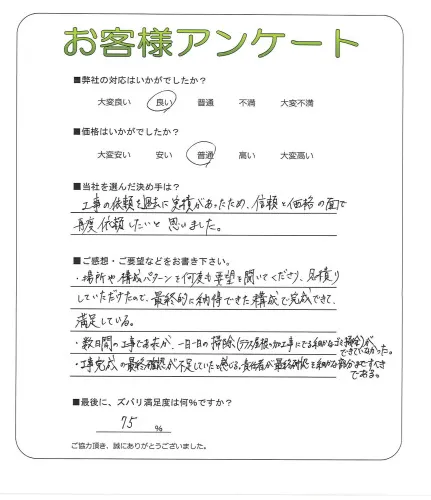 お客様アンケート
■弊社の対応はいかがでしたか？
大変良い 良い 普通 不満 大変不満
■価格はいかがでしたか？
大変安い 安い 普通 高い 大変高い
■当社を選んだ決め手は？
工事の依頼を過去に実績があったため、信頼と価格の面で
再度依頼したいと思いました。
■ご感想・ご要望などをお書き下さい。
・場所や構成パターンを何度も要望を聞いてくださり、見積り
していただけたので、最終的に納得できた構成で完成できて、
満足している。
・数日間の工事であったが、一日一日の掃除(テラス屋根の加工事にでる細かなゴミ掃除)が
できていなかった。
・工事完成の最終確認が不足していたと感じる。責任者が最終確認を細かな部分まですべき
である。
■最後に、ズバリ満足度は何％ですか？
75 ％
ご協力頂き、誠にありがとうございました。